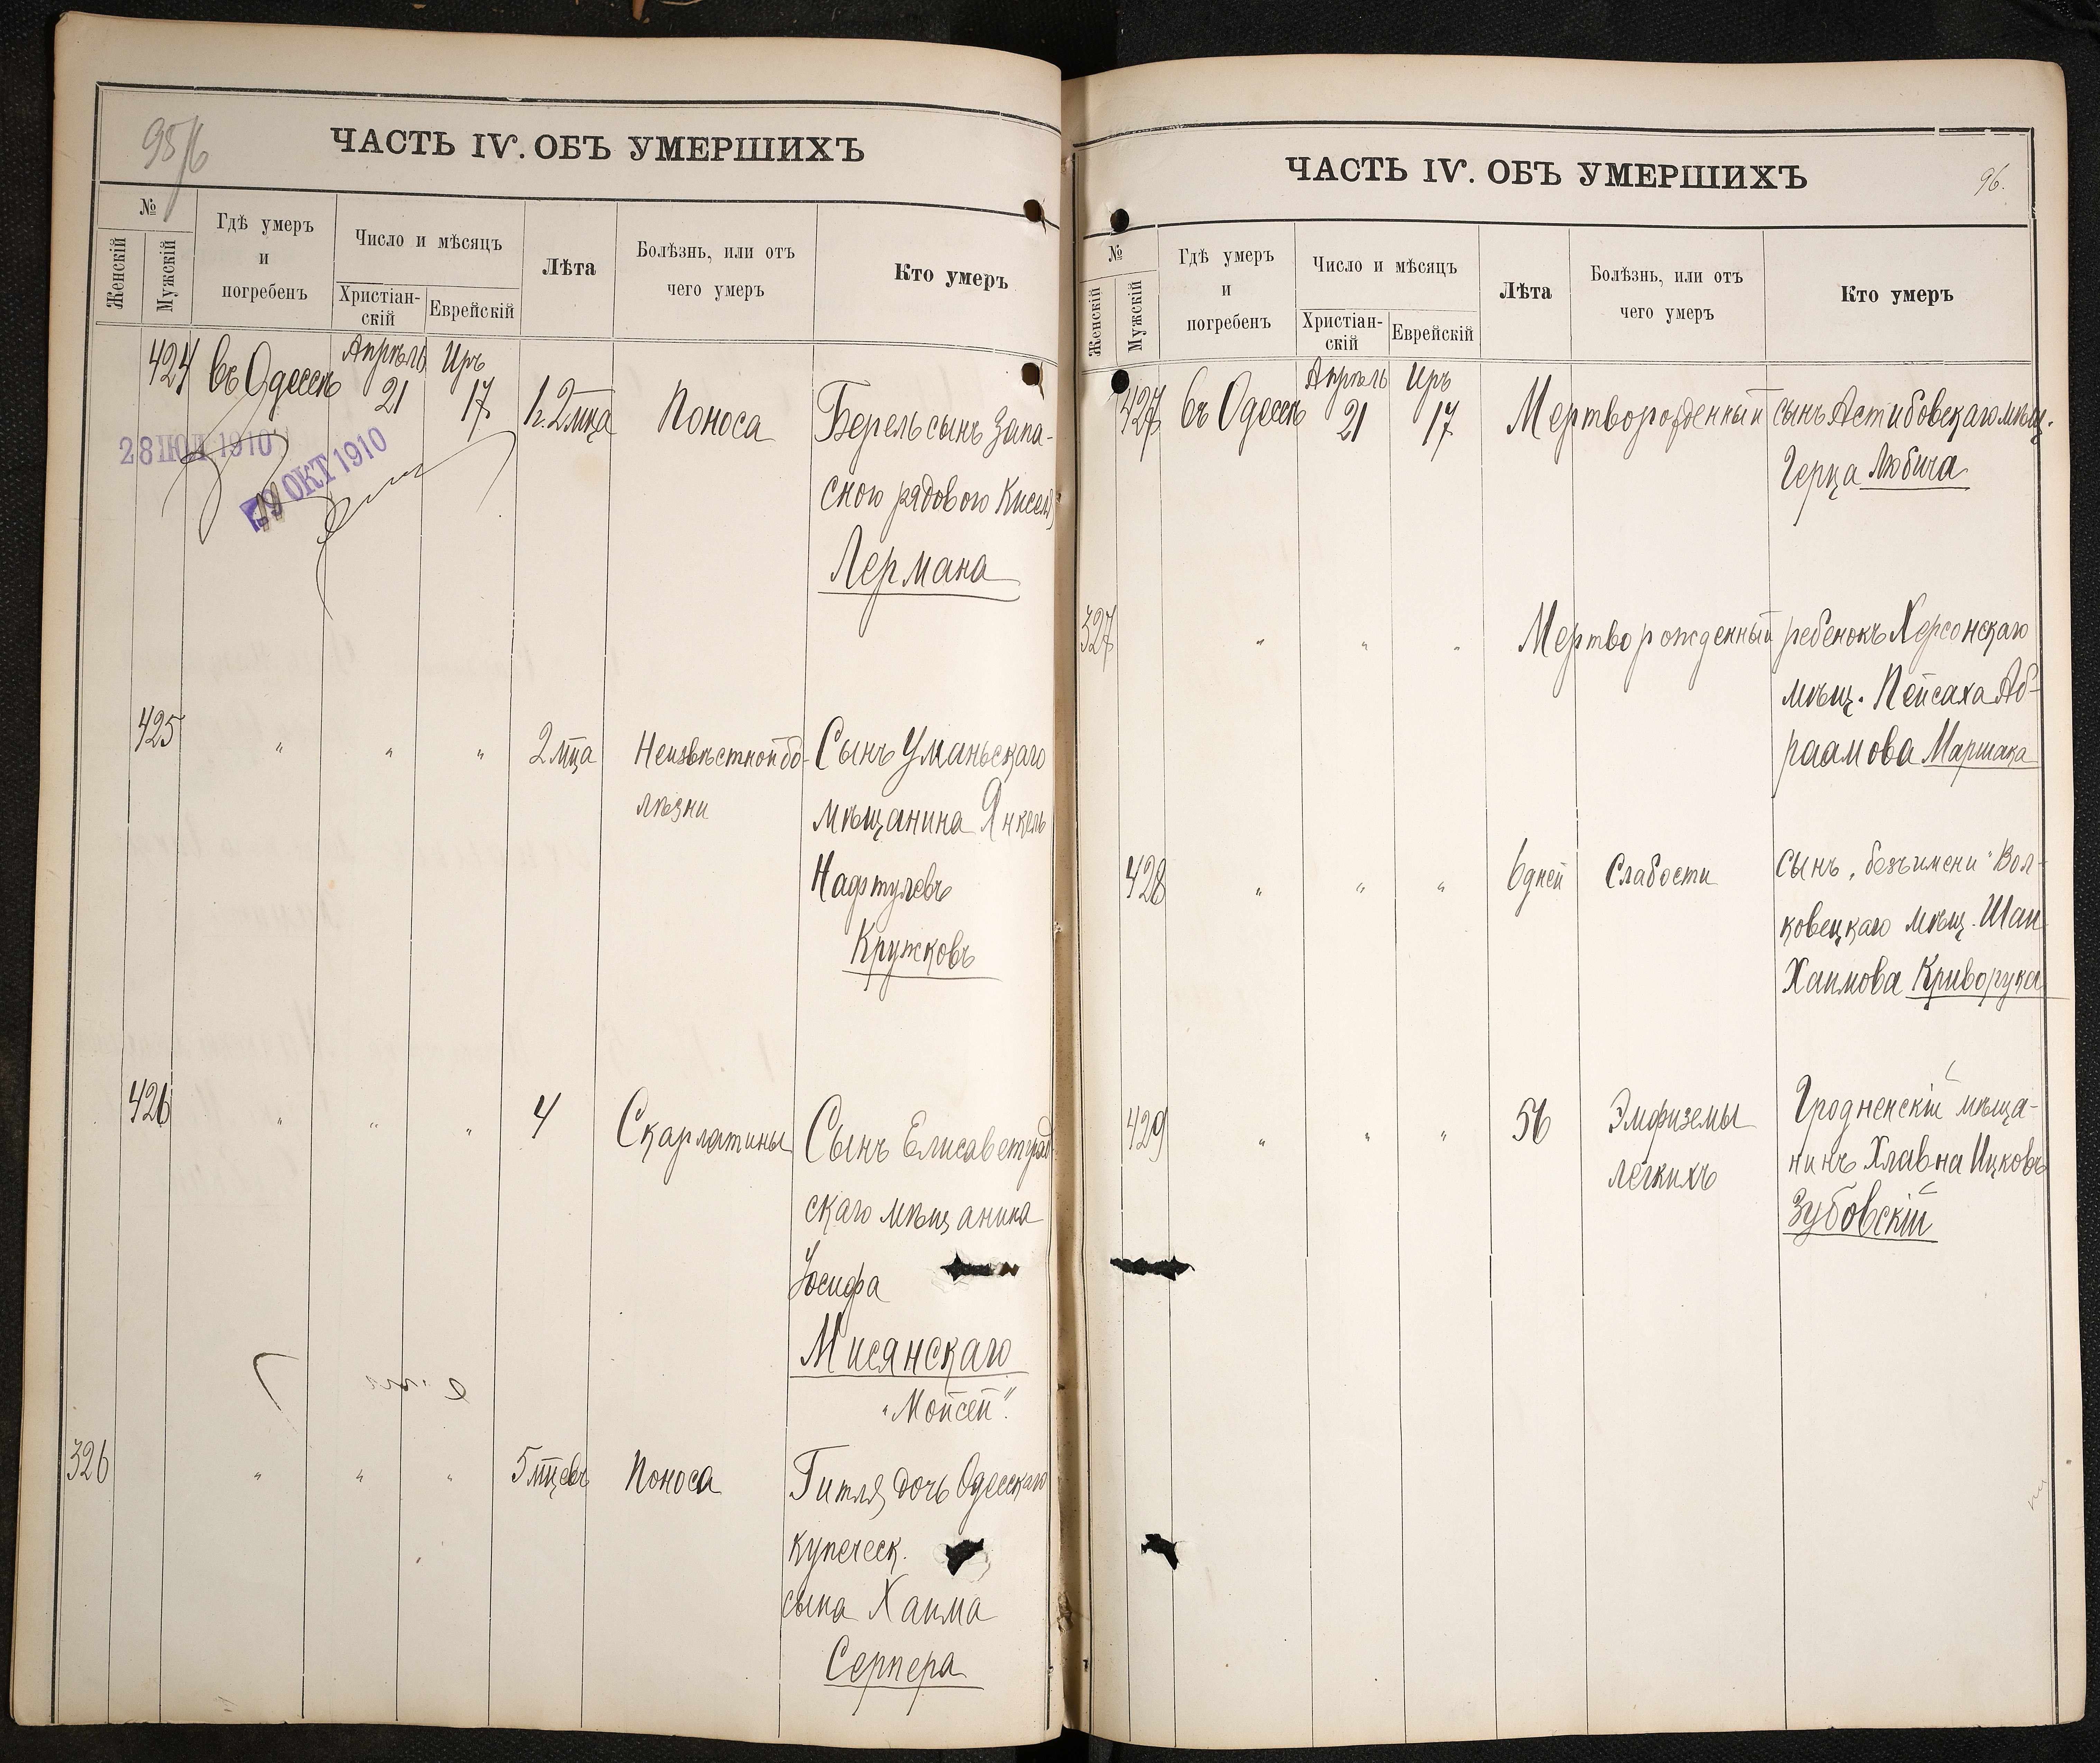 95/6
ЧАСТЬ IV. ОБЪ УМЕРШИХЪ
№
Женскій
Мужскій
Гдѣ умеръ
и
погребенъ
Число и мѣсяцъ
Христіан-
скій
Еврейскій
Лѣта
Болѣзнь, или отъ
чего умеръ
Кто умеръ
424 въ Одессѣ Апрѣль 21 Иръ 17 1г. 2 мца Поноса Берель сынъ запа-
снаго рядового Киселя
Лермана
28 ІЮЛ 1910
29 ОКТ 1910
425 " " " 2 мца Неизвѣстной бо- Сынъ Уманьскаго
лѣзни мѣщанина Янкель
Нафтулевъ
Кружковъ
426 " " " 4 Скарлатины Сынъ Елисаветград
скаго мѣщанина
Іосифа
Мисянскаго
"Мойсей".
326 " " " 5 мцевъ Поноса Гитля дочь Одесскаго
купеческ.
сына Хаима
Серпера
ЧАСТЬ IV. ОБЪ УМЕРШИХЪ
96.
№
Женскій
Мужскій
Гдѣ умеръ
и
погребенъ
Число и мѣсяцъ
Христіан-
скій
Еврейскій
Лѣта
Болѣзнь, или отъ
чего умеръ
Кто умеръ
427 въ Одессѣ Апрѣль 21 Иръ 17 Мертворожденный сынъ Астибовскаго мѣщ.
Герца Любича
327 " " " Мертворожденный ребенокъ Херсонскаго
мѣщ. Пейсаха Аб-
раамова Маршака
428 " " " 6 дней Слабости сынъ "безъ имени" Вол-
ковецкаго мѣщ.
Хаимова Криворука
429 " " " 56 Эмфиземы Гродненскій мѣща-
легкихъ нинъ Хлавна Ицковъ
Зубовскій